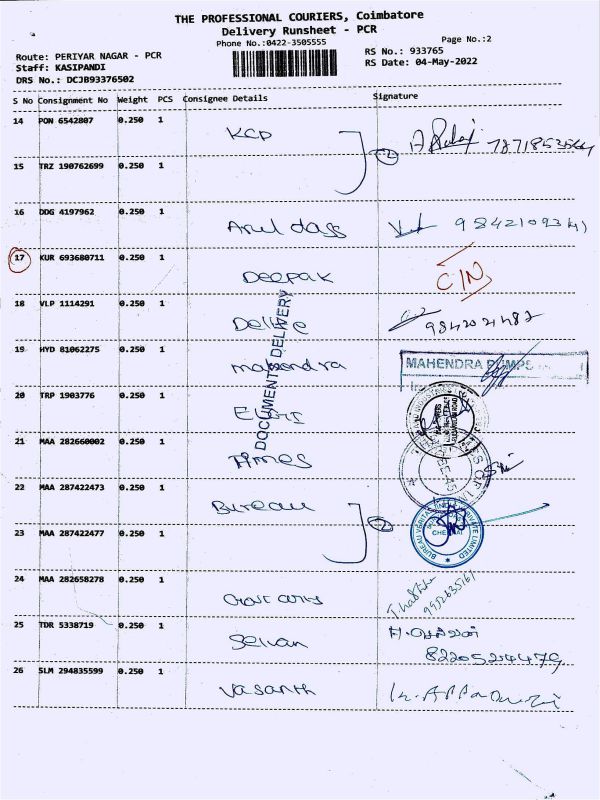 THE PROFESSIONAL COURIERS, Coimbatore
Delivery Runsheet - PCR
Phone No.:0422-3505555
Page No.:2
Route: PERIYAR NAGAR - PCR
RS No.: 933765
Staff: KASIPANDI
RS Date: 04-May-2022
DRS No.: DCJB93376502
S No Consignment No Weight PCS Consignee Details Signature
14 PON 6542807 0.250 1 KCP 2
15 TRZ 190762699 0.250 1
16 DDG 4197962 0.250 1 Arul dass
17 KUR 693680711 0.250 1 Deepak C/N
18 VLP 1114291 0.250 1
19 HYD 81062275 0.250 1 MAHENDRA PUMPS
20 TRP 1903776 0.250 1
DOCUMENTS DELIVERY
21 MAA 282660002 0.250 1 Times
22 MAA 287422473 0.250 1 Bureau 2
BUREAU VERITAS PRIVATE LIMITED
CHENNAI
23 MAA 287422477 0.250 1
24 MAA 282658278 0.250 1 9952635161
25 TDR 5338719 0.250 1 Selvan
8220524479
26 SLM 294835599 0.250 1 Vasanth